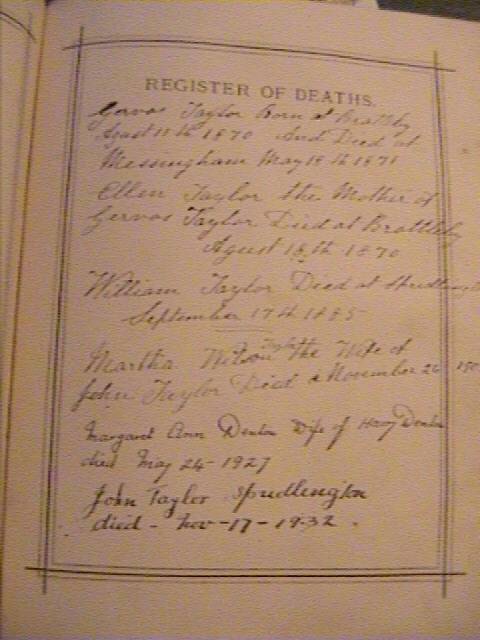 REGISTER OF DEATHS.
Gervas Taylor Born at Brattleby
Agust 11th 1870 And Died at
Messingham May 18th 1871
Ellen Taylor the Mother of
Gervas Taylor Died at Brattleby
Agust 18th 1870
William Taylor Died at Spridlington
September 17th 1885
Taylor
Martha Wilson the Wife of
John Taylor Died November 26
Margaret Ann Denton Wife of Harry Denton
died May 24 - 1927
John Taylor Spridlington
died - Nov - 17 - 1932.